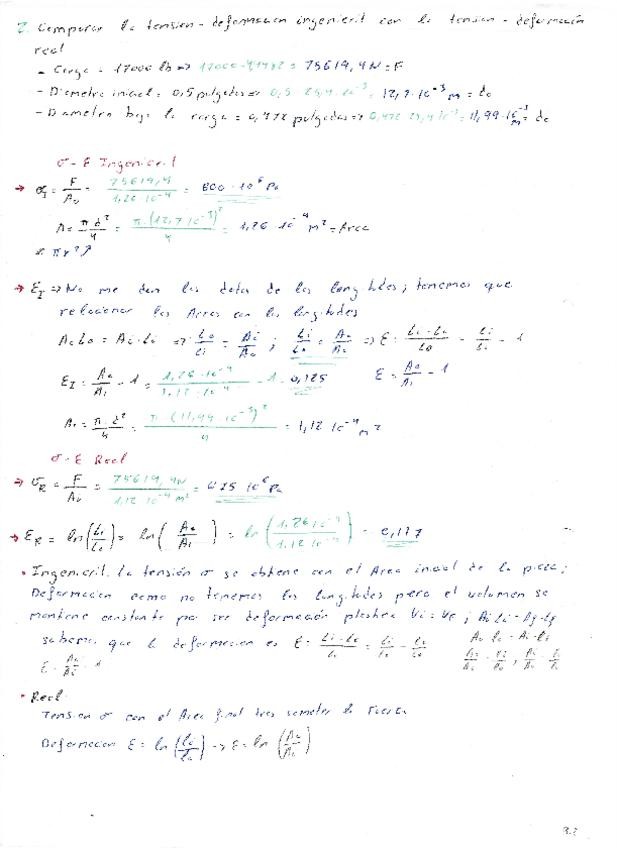 2. Comparar la tension - deformacion ingenieril con la tension - deformación
real
- Carga = 17000 lb => 17000 · = 75619,4 N = F
- Diametro inicial = 0,5 pulgadas => 0,5 · 25,4 · 10⁻³ = 12,7 · 10⁻³ m = do
- Diametro bajo la carga = 0,472 pulgadas => 0,472 · 25,4 · 10⁻³ = 11,99 · 10⁻³ m = do
σ - E Ingenieril
→ σI = F/A₀ = 75619,4/1,26 · 10⁻⁴ = 600 · 10⁶ Pa
A = π · d²/4 = π · (12,7 · 10⁻³)²/4 = 1,26 · 10⁻⁴ m² = Area
π r²
→ EI => No me dan los datos de las longitudes; tenemos que
relacionar las Areas con las longitudes
A₀ L₀ = Ai · Li => L₀/Li = Ai/A₀ ; Li/L₀ = A₀/Ai => E = Li - L₀/L₀ = Li/L₀ - 1
EI = A₀/Ai - 1 = 1,26 · 10⁻⁴/1,12 · 10⁻⁴ - 1 = 0,125 E = A₀/Ai - 1
Ai = π · d²/4 = π · (11,99 · 10⁻³)²/4 = 1,12 · 10⁻⁴ m²
σ - E Real
→ σR = F/A = 75619,4 N/1,12 · 10⁻⁴ m² = 675 · 10⁶ Pa
→ ER = ln(Li/L₀) = ln(A₀/Ai) = ln(1,26 · 10⁻⁴/1,12 · 10⁻⁴) = 0,117
• Ingenieril: la tensión σ se obtiene con el Area inicial de la pieza;
Deformacion como no tenemos las longitudes pero el volumen se
mantiene constante por ser deformación plastica Vi = VF ; Ai Li = Af · Lf
sabemos que la deformacion es E = Li - L₀/L₀ = Li/L₀ - L₀/L₀ A₀ · L₀ = Ai · Li
E = A₀/Ai - 1
• Real
Tension σ con el Area final tras someter la Fuerza
Deformacion E = ln(Li/L₀) → E = ln(A₀/Ai)